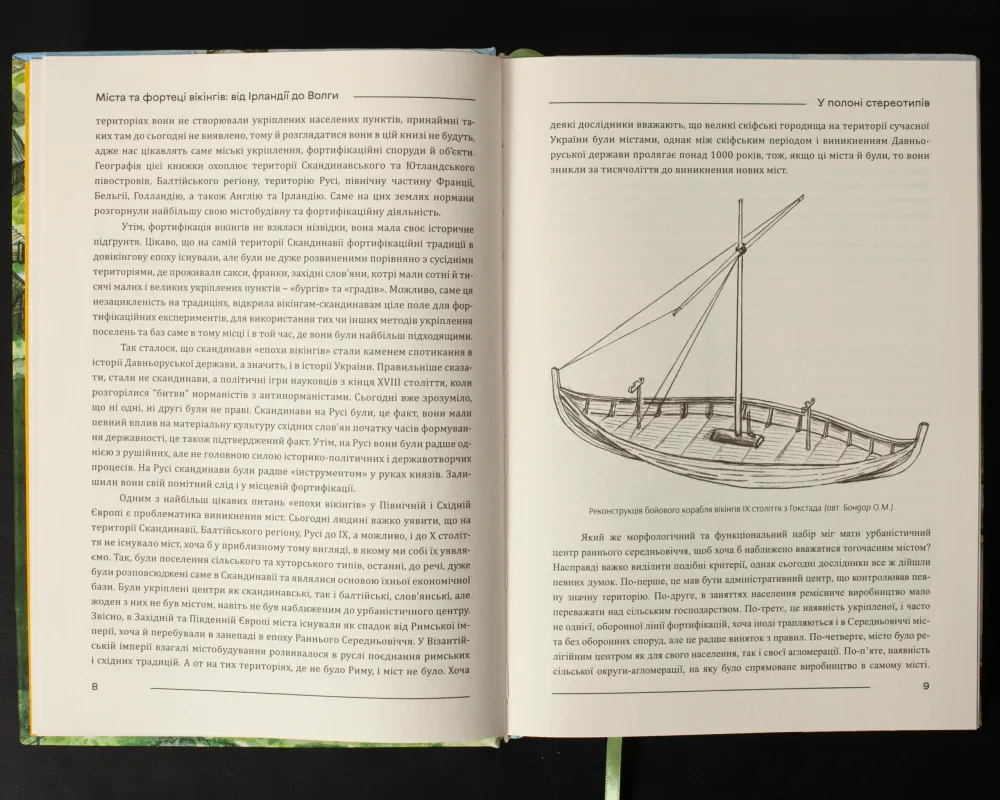 Міста та фортеці вікінгів: від Ірландії до Волги
територіях вони не створювали укріплених населених пунктів, принаймні та-
ких там до сьогодні не виявлено, тому й розглядатися вони в цій книзі не будуть,
адже нас цікавлять саме міські укріплення, фортифікаційні споруди й об’єкти.
Географія цієї книжки охоплює території Скандинавського та Ютландського
півостровів, Балтійського регіону, територію Русі, північну частину Франції,
Бельгії, Голландію, а також Англію та Ірландію. Саме на цих землях нормани
розгорнули найбільшу свою містобудівну та фортифікаційну діяльність.
Утім, фортифікація вікінгів не взялася нізвідки, вона мала своє історичне
підґрунтя. Цікаво, що на самій території Скандинавії фортифікаційні традиції в
довікінгову епоху існували, але були не дуже розвиненими порівняно з сусідніми
територіями, де проживали сакси, франки, західні слов’яни, котрі мали сотні й ти-
сячі малих і великих укріплених пунктів – «бургів» та «градів». Можливо, саме ця
незацикленість на традиціях, відкрила вікінгам-скандинавам ціле поле для фор-
тифікаційних експериментів, для використання тих чи інших методів укріплення
поселень та баз саме в тому місці і в той час, де вони були найбільш підходящими.
Так сталося, що скандинави «епохи вікінгів» стали каменем спотикання в
історії Давньоруської держави, а значить, і в історії України. Правильніше сказа-
ти, стали не скандинави, а політичні ігри науковців з кінця XVIII століття, коли
розгорілися "битви" норманістів з антинорманістами. Сьогодні вже зрозуміло,
що ні одні, ні другі були не праві. Скандинави на Русі були, це факт, вони мали
певний вплив на матеріальну культуру східних слов’ян початку часів формуван-
ня державності, це також підтверджений факт. Утім, на Русі вони були радше од-
нією з рушійних, але не головною силою історико-політичних і державотворчих
процесів. На Русі скандинави були радше «інструментом» у руках князів. Зали-
шили вони свій помітний слід і у місцевій фортифікації.
Одним з найбільш цікавих питань «епохи вікінгів» у Північній і Східній
Європі є проблематика виникнення міст. Сьогодні людині важко уявити, що на
території Скандинавії, Балтійського регіону, Русі до IX, а можливо, і до X століт-
тя не існувало міст, хоча б у приблизному тому вигляді, в якому ми собі їх уявля-
ємо. Так, були поселення сільського та хуторського типів, останні, до речі, дуже
були розповсюджені саме в Скандинавії та являлися основою їхньої економічної
бази. Були укріплені центри як скандинавські, так і балтійські, слов’янські, але
жоден з них не був містом, навіть не був наближеним до урбаністичного центру.
Звісно, в Західній та Південній Європі міста існували як спадок від Римської ім-
перії, хоча й перебували в занепаді в епоху Раннього Середньовіччя. У Візантій-
ській імперії взагалі містобудування розвивалося в руслі поєднання римських
і східних традицій. А от на тих територіях, де не було Риму, і міст не було. Хоча
8
У полоні стереотипів
деякі дослідники вважають, що великі скіфські городища на території сучасної
України були містами, однак між скіфським періодом і виникненням Давньо-
руської держави пролягає понад 1000 років, тож, якщо ці міста й були, то вони
зникли за тисячоліття до виникнення нових міст.
Реконструкція бойового корабля вікінгів IX століття з Гокстада (авт. Бондар О.М.).
Який же морфологічний та функціональний набір міг мати урбаністичний
центр раннього середньовіччя, щоб хоча б наближено вважатися тогочасним містом?
Насправді важко виділити подібні критерії, однак сьогодні дослідники все ж дійшли
певних думок. По-перше, це мав бути адміністративний центр, що контролював пев-
ну значну територію. По-друге, в заняттях населення ремісниче виробництво мало
переважати над сільським господарством. По-третє, це наявність укріпленої, і часто
не однієї, оборонної лінії фортифікацій, хоча іноді трапляються і в Середньовіччі міс-
та без оборонних споруд, але це радше виняток з правил. По-четверте, місто було ре-
лігійним центром як для свого населення, так і своєї агломерації. По-п’яте, наявність
сільської округи-агломерації, на яку було спрямоване виробництво в самому місті.
9